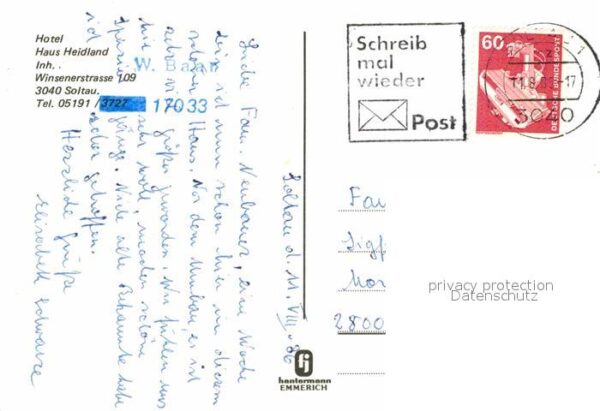 Hotel
Haus Heidland
Inh. W. Bade
Winsenerstrasse 109
3040 Soltau.
Tel. 05191 / 3727 17033
Soltau d. 11. VIII. 86
Liebe Frau Neubauer, eine Woche
bin ich nun schon hier in diesem
schönen Haus. Vor dem Umbau, er ist
sehr viel größer geworden. Wir fühlen uns
hier sehr wohl, machen schöne
Spaziergänge. Viele alte Bekannte habe
ich schon getroffen.
Herzliche Grüße
Elisabeth Schwarze
Schreib
mal
wieder
Post
60
DEUTSCHE BUNDESPOST
11.8. -17
3040
Frau
Sigf
Mor
2800
privacy protection
Datenschutz
hantermann
EMMERICH